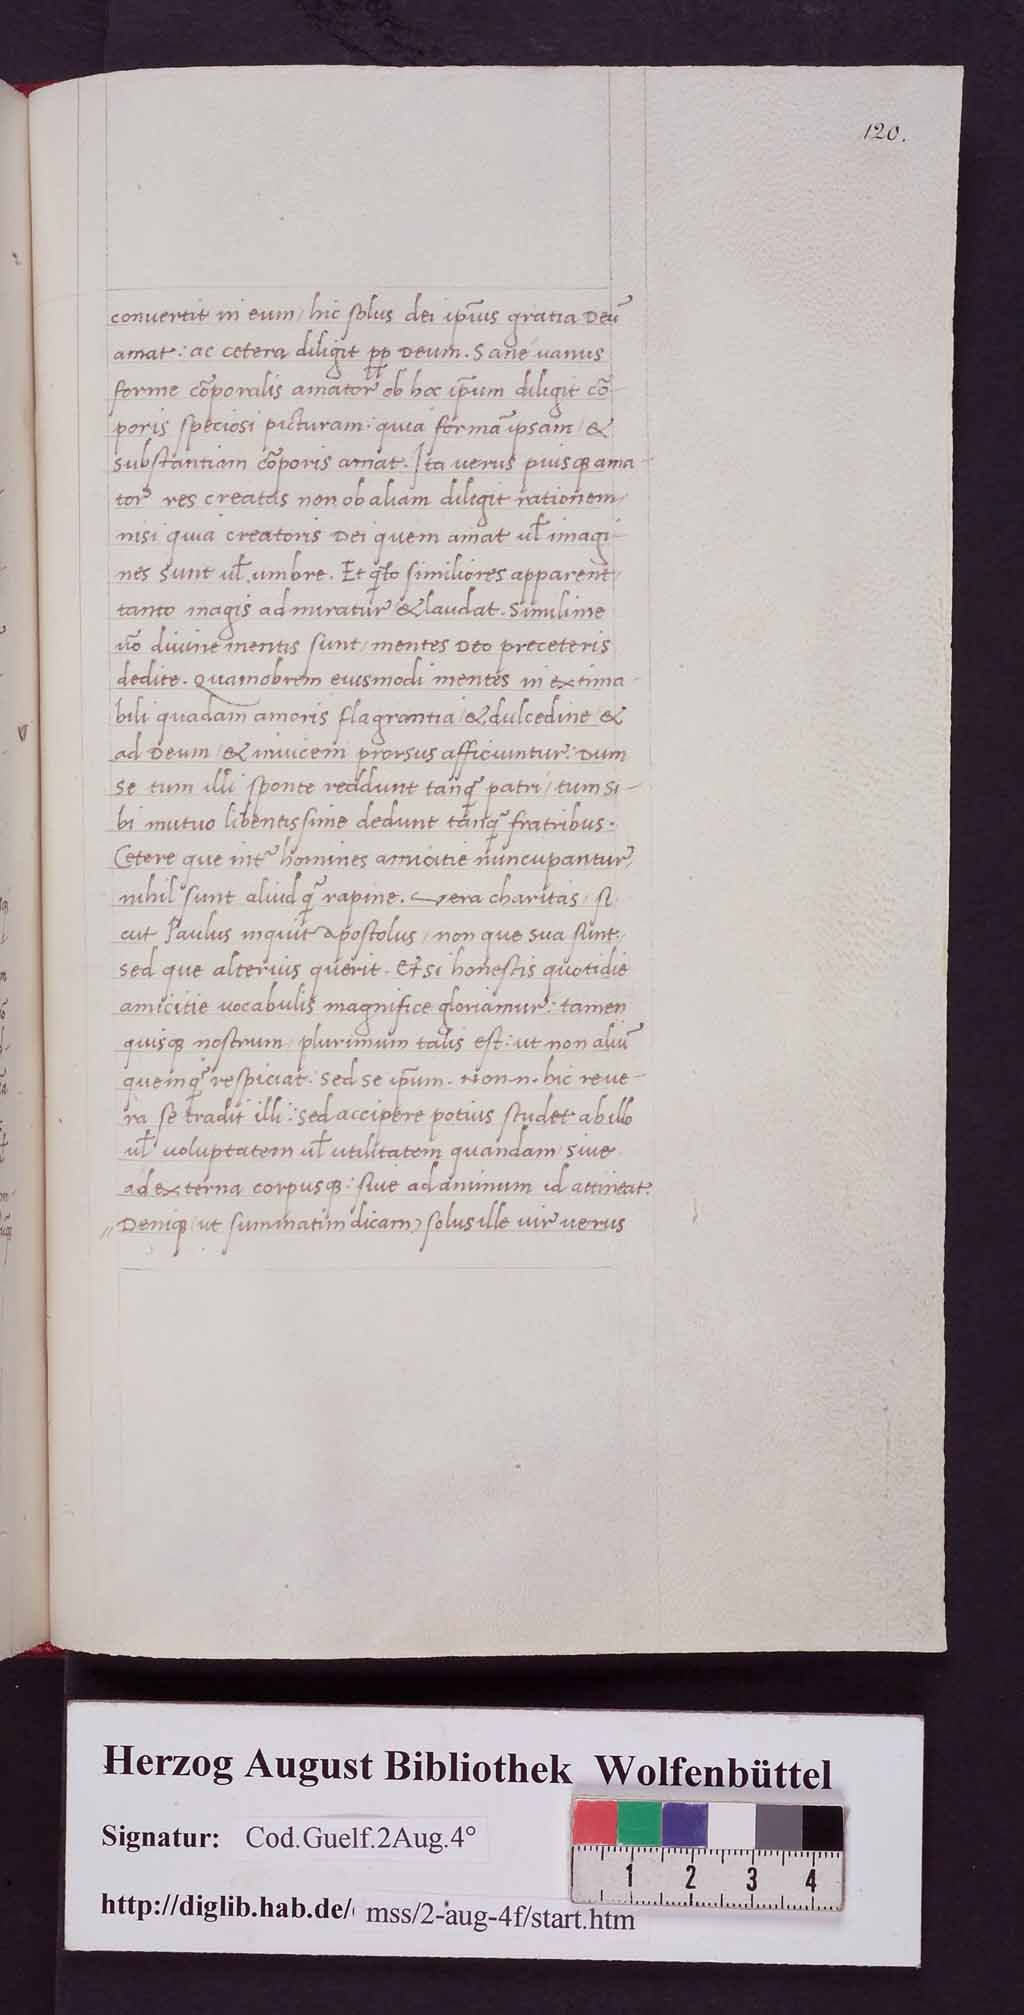 120.
conuertit in eum / hic solus dei ip̄ius gratia Deū
amat: ac cetera diligit pp Deum. Sane uanus
forme cōporalis amator ob hoc ip̄um diligit cō-
poris speciosi picturam: quia formā ipsam / &
substantiam cōporis amat. Ita uerus piusq̢ ama-
tor res creatas non ob aliam diligit rationem /
nisi quia creatoris Dei quem amat ul̄ imagi-
nes sunt ul̄ umbre. Et q̄to similiores apparent /
tanto magis admiratur & laudat. Simillime
uō diuine mentis sunt / mentes Deo preceteris
dedite. Quamobrem eiusmodi mentes in extima-
bili quadam amoris flagrantia / & dulcedine / &
ad Deum / & inuicem prorsus afficiuntur: Dum
se tum illi sponte reddunt tanq̄ patri / tum si-
bi mutuo libentissime dedunt tanq̄ fratribus.
Cetere que int̄ homines amicitie nuncupantur,
nihil sunt aliud q̄ rapine. Vera charitas / si
cut Paulus inquit Apostolus / non que sua sunt:
sed que alterius querit. Etsi honestis quotidie
amicitie uocabulis magnifice gloriamur: tamen
quisq̢ nostrum / plurimum talis est: ut non aliū
quemq̄ respiciat. sed se ip̄um. Non .n. hic reue-
ra se tradit illi: sed accipere potius studet ab illo
ul̄ uoluptatem ul̄ utilitatem quandam / siue
ad externa corpusq̢: siue ad animum id attineat.
„ Deniq̢ (ut summatim dicam) solus ille uir uerus
Herzog August Bibliothek Wolfenbüttel
Signatur: Cod.Guelf.2Aug.4°
1 2 3 4
http://diglib.hab.de/ mss/2-aug-4f/start.htm